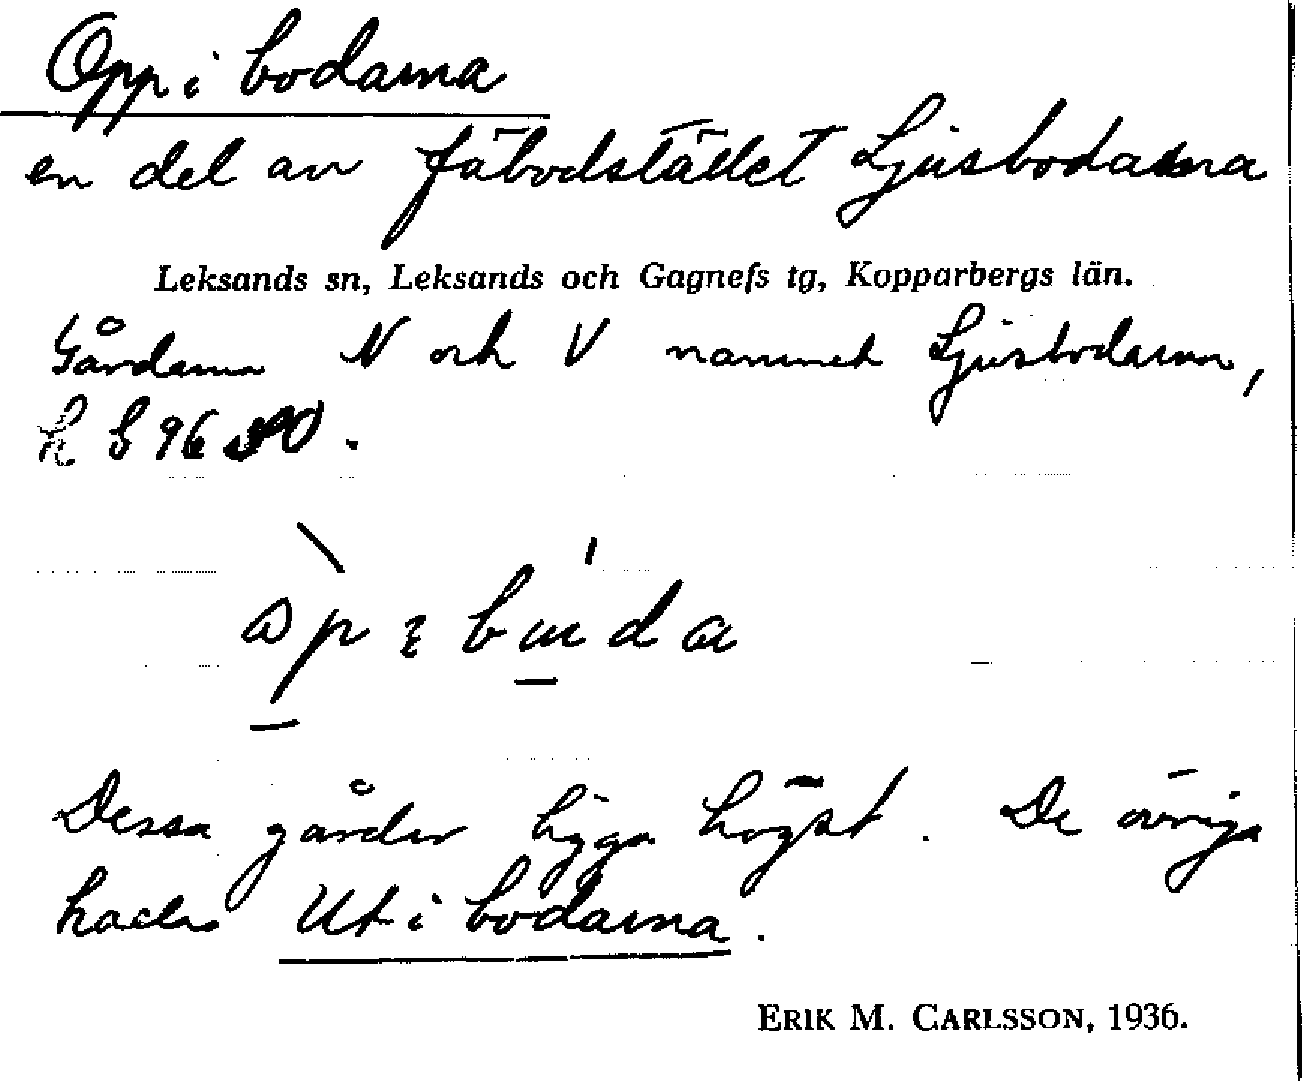 Opp i bodarna
en del av fäbodstället Ljusbodarna
Leksands sn, Leksands och Gagnefs tg, Kopparbergs län.
Gårdarna N och V namnet Ljusbodarna,
h b 96
Dessa gårdar ligga högst. De övriga
kallas Ut i bodarna.
ERIK M. CARLSSON, 1936.